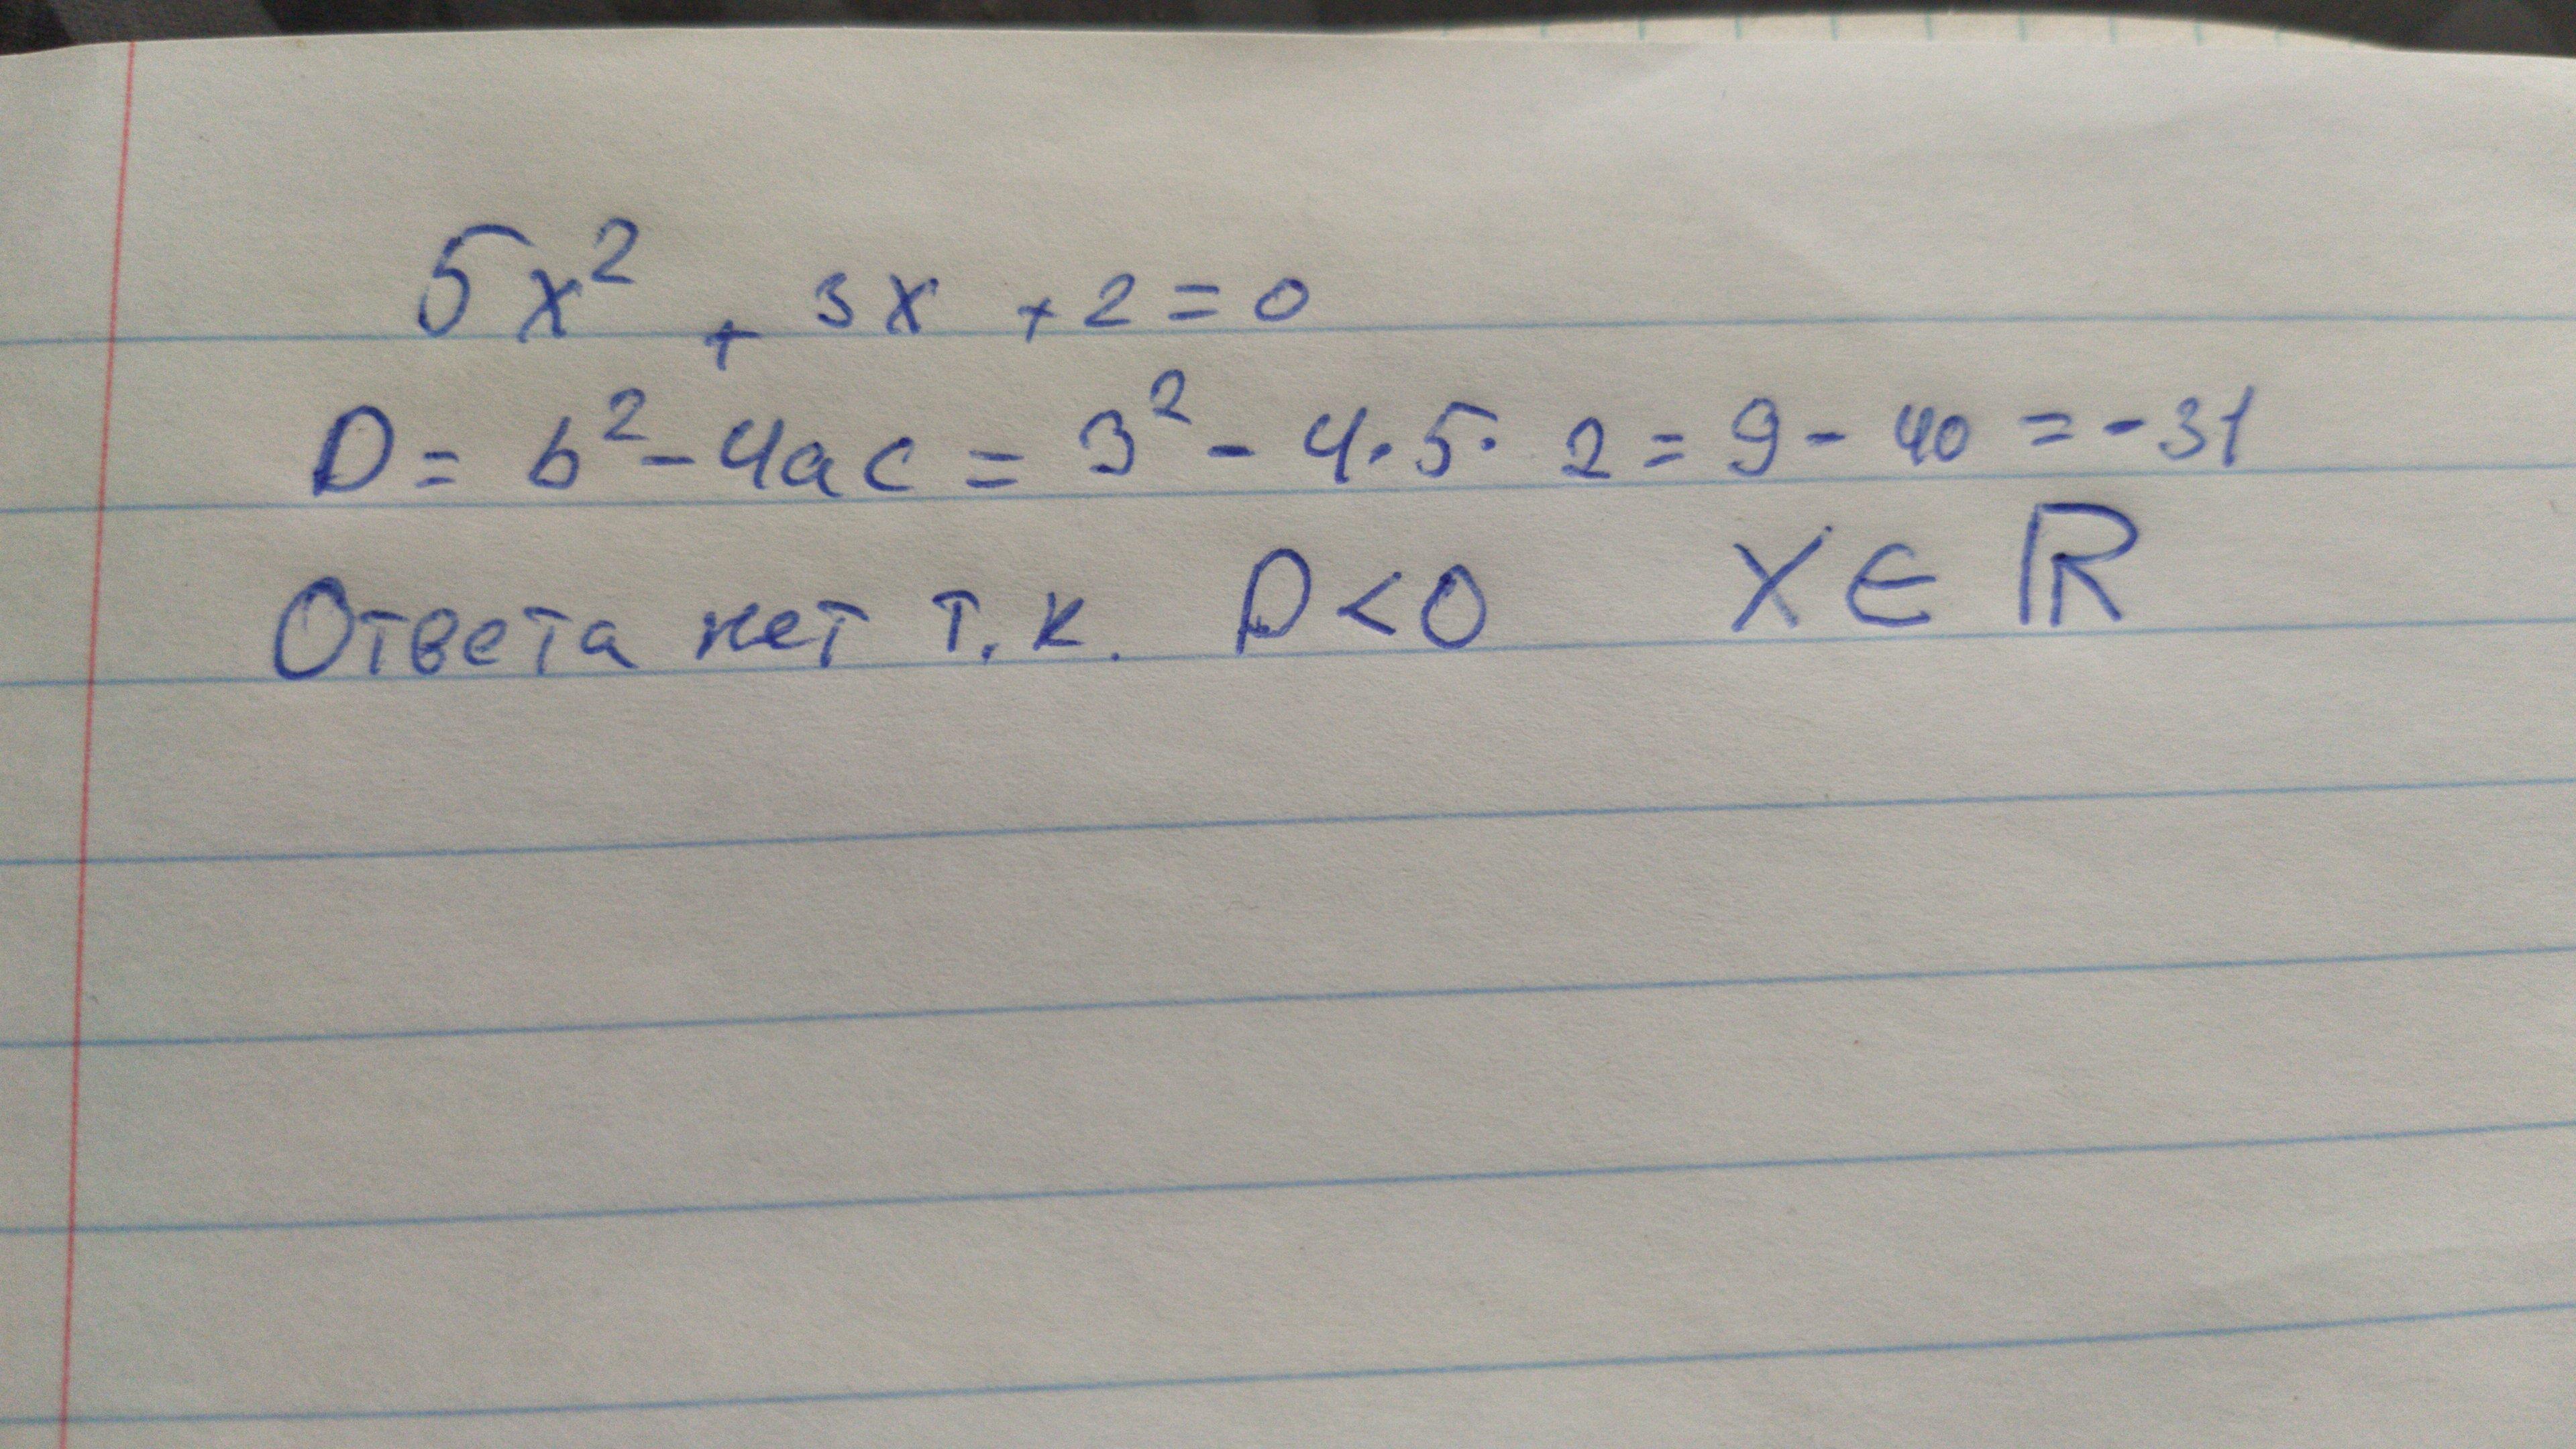 5x² + 3x + 2 = 0
D = b² - 4ac = 3² - 4·5· 2 = 9 - 40 = -31
Ответа нет т.к. D < 0 X ∈ ℝ